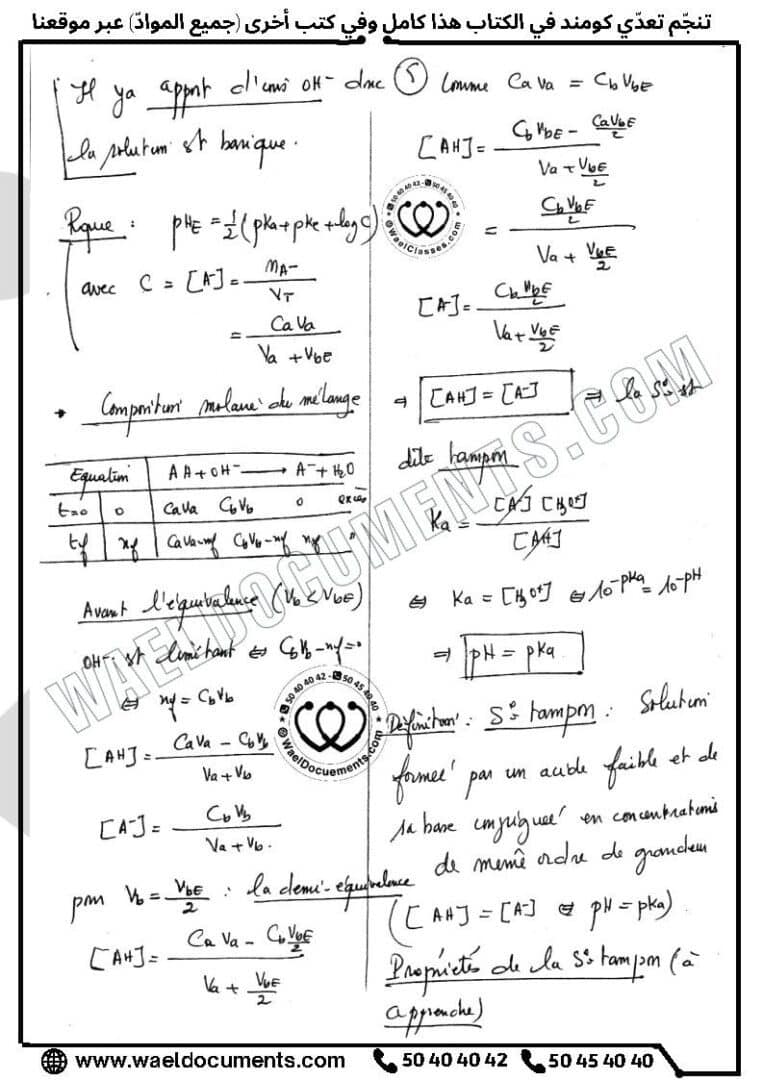 تنجّم تعدّي كومند في الكتاب هذا كامل وفي كتب أخرى (جميع الموادّ) عبر موقعنا
Il ya apport d'ions OH- donc
la solution st basique.
Rque : pHE = 1/2 (pKa + pKe + log C)
avec C = [A-] = nA- / VT
= CaVa / (Va + VbE)
* Composition molaire du mélange
Equation | AH + OH- → A- + H2O
t=0 | 0 | CaVa CbVb 0 excès
tf | xf | CaVa-xf CbVb-xf xf "
Avant l'équivalence (Vb < VbE)
OH- : st limitant ⇔ CbVb - xf = 0
⇔ xf = CbVb
[AH] = (CaVa - CbVb) / (Va + Vb)
[A-] = CbVb / (Va + Vb).
pour Vb = VbE/2 : la demi-équivalence
[AH] = (CaVa - CbVbE/2) / (Va + VbE/2)
Comme CaVa = CbVbE
[AH] = (CbVbE - CaVbE/2) / (Va + VbE/2)
= (CbVbE/2) / (Va + VbE/2)
[A-] = (CbVbE/2) / (Va + VbE/2)
⇒ [AH] = [A-] ⇒ la S° st
dite tampon
Ka = [A-] [H3O+] / [AH]
⇔ Ka = [H3O+] ⇔ 10-pKa = 10-pH
⇒ pH = pKa
Définition : S° tampon : Solution
formée par un acide faible et de
sa base conjuguée en concentrations
de même ordre de grandeur
([AH] = [A-] ⇔ pH = pKa).
Propriétés de la S° tampon (à
apprendre)
WAELDOCUMENTS.COM
50 40 40 42 - 50 45 40 40
@WaelClasses.com
50 40 40 42 - 50 45 40 40
@WaelDocuements.com
www.waeldocuments.com 50 40 40 42 50 45 40 40